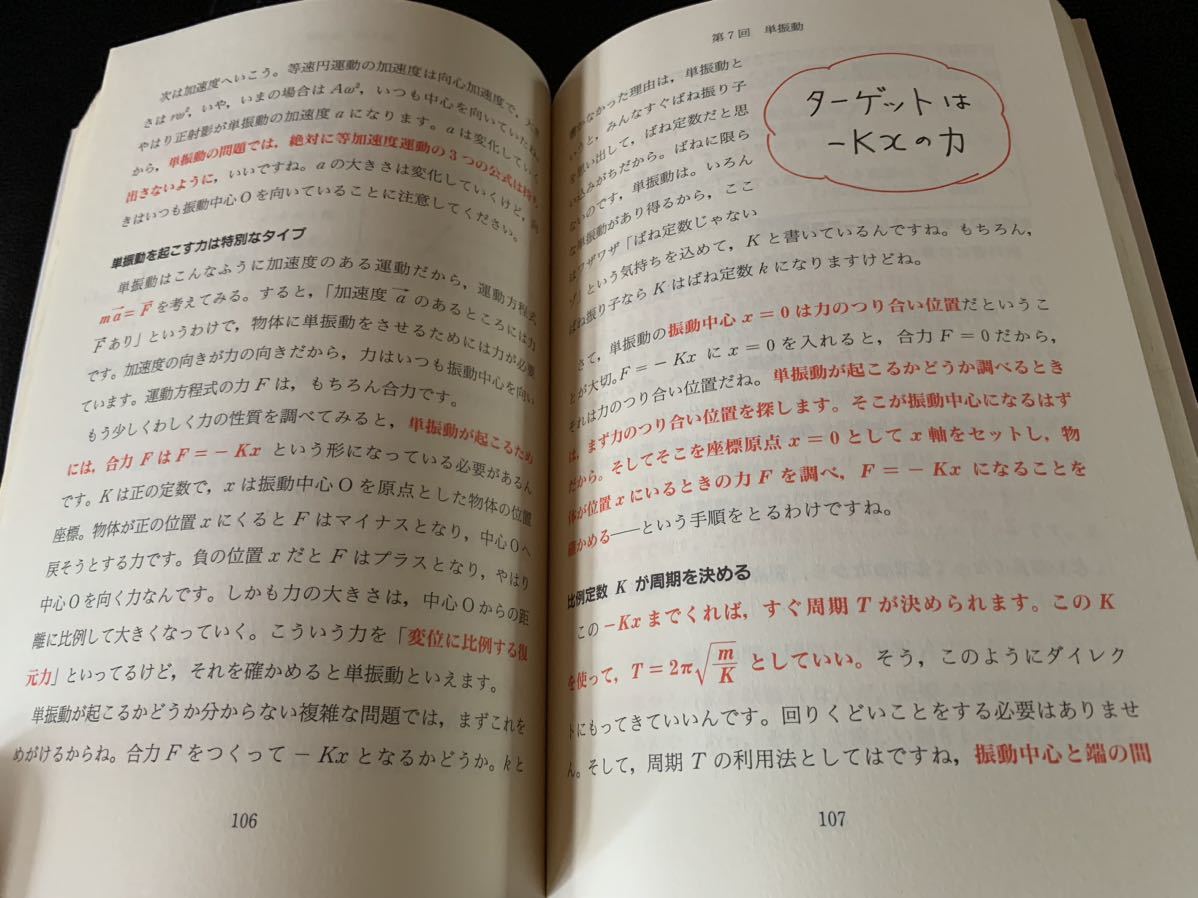 次は加速度へいこう。等速円運動の加速度は向心加速度で，大き
さは rω²，いや，いまの場合は Aω²，いつも中心を向いていたね。
やはり正射影が単振動の加速度 a になります。a は変化していく
から，単振動の問題では，絶対に等加速度運動の3つの公式は持ち
出さないように，いいですね。a の大きさは変化していくけど，向
きはいつも振動中心Oを向いていることに注意してください。
単振動を起こす力は特別なタイプ
単振動はこんなふうに加速度のある運動だから，運動方程式
ma=F を考えてみる。すると，「加速度 a のあるところには力
F あり」というわけで，物体に単振動をさせるためには力が必要
です。加速度の向きが力の向きだから，力はいつも振動中心を向い
ています。運動方程式の力 F は，もちろん合力です。
もう少しくわしく力の性質を調べてみると，単振動が起こるため
には，合力 F は F=−Kx という形になっている必要があるん
です。K は正の定数で，x は振動中心Oを原点とした物体の位置
座標。物体が正の位置 x にくると F はマイナスとなり，中心Oへ
戻そうとする力です。負の位置 x だと F はプラスとなり，やはり
中心Oを向く力なんです。しかも力の大きさは，中心Oからの距
離に比例して大きくなっていく。こういう力を「変位に比例する復
元力」といってるけど，それを確かめると単振動といえます。
単振動が起こるかどうか分からない複雑な問題では，まずこれを
めがけるからね。合力 F をつくって −Kx となるかどうか。k と
106
第7回 単振動
ターゲットは
−Kxの力
かなかった理由は，単振動と
いうと，みんなすぐばね振り子
を思い出して，ばね定数だと思
い込みがちだから。ばねに限ら
ないのです，単振動は。いろん
な単振動があり得るから，ここ
はワザワザ「ばね定数じゃない
ゾ」という気持ちを込めて，K と書いているんですね。もちろん，
ばね振り子なら K はばね定数 k になりますけどね。
さて，単振動の振動中心 x=0 は力のつり合い位置だというこ
とが大切。F=−Kx に x=0 を入れると，合力 F=0 だから，
それは力のつり合い位置だね。単振動が起こるかどうか調べるとき
は，まず力のつり合い位置を探します。そこが振動中心になるはず
だから。そしてそこを座標原点 x=0 として x 軸をセットし，物
体が位置 x にいるときの力 F を調べ，F=−Kx になることを
確かめる——という手順をとるわけですね。
比例定数 K が周期を決める
この −Kx までくれば，すぐ周期 T が決められます。この K
を使って，T=2π√(m/K) としていい。そう，このようにダイレク
トにもってきていいんです。回りくどいことをする必要はありませ
ん。そして，周期 T の利用法としてはですね，振動中心と端の間
107